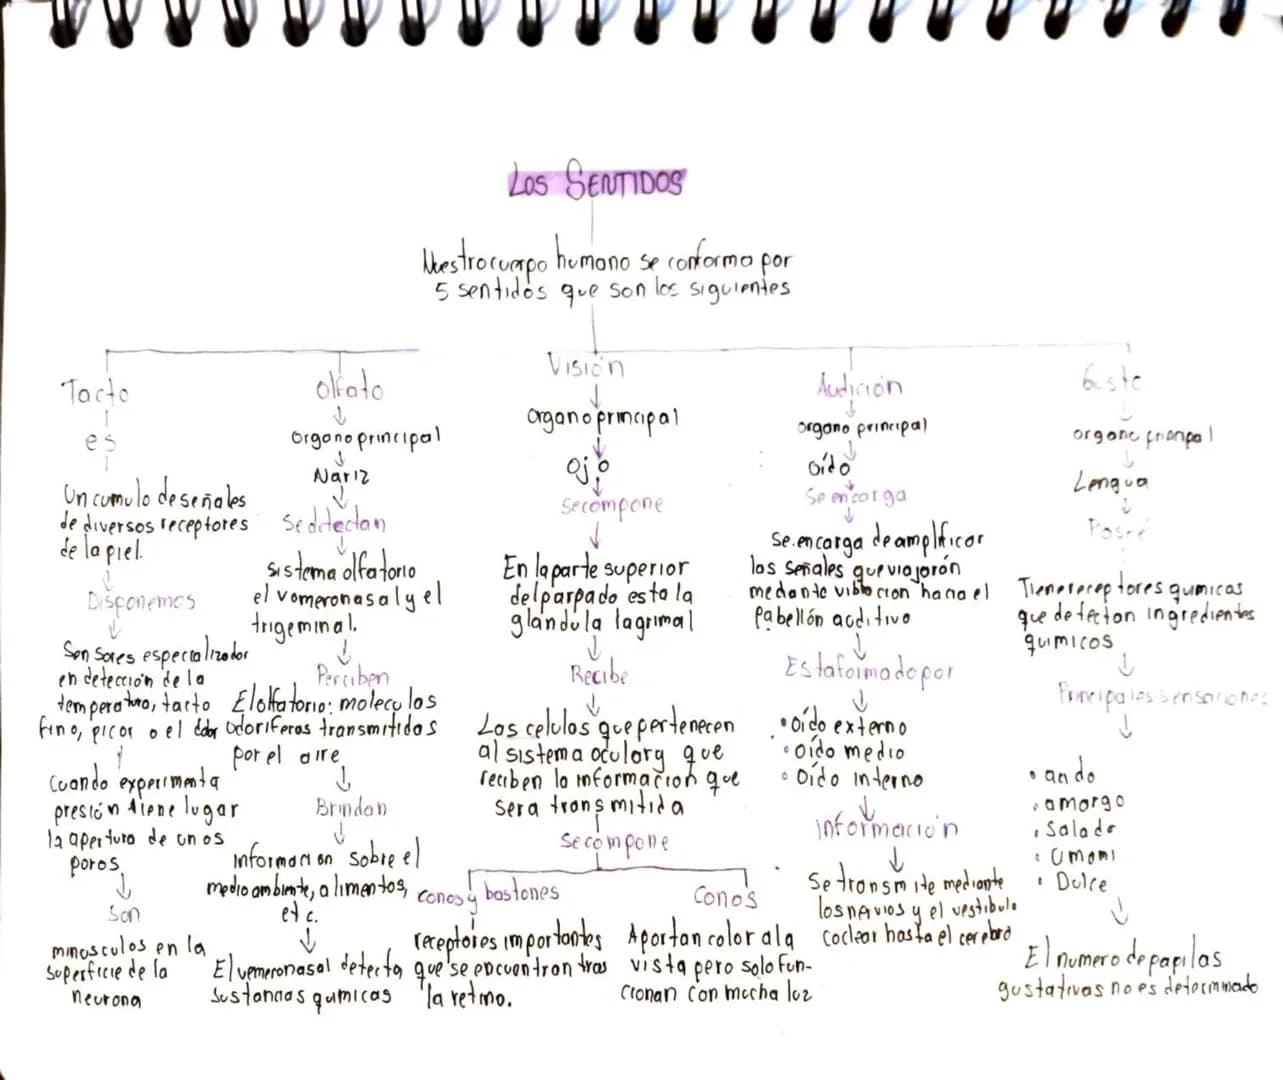 LOS SENTIDOS
Nuestro cuerpo humano se conforma por
5 sentidos que son los siguientes
Tacto
es
Un cumulo de señales
de diversos receptores
de la piel.
Disponemos
Sensores especializador
en detección de la
temperatura, tacto
fino, picor o el dolor
Cuando experimenta
presión tiene lugar
la apertura de unos
poros
Son
minusculos en la
superficie de la
neurona
Olfato
Organo principal
Nariz
Se detectan
Sistema olfatorio
el vomeronasal y el
trigeminal.
Perciben
El olfatorio: moleculas
odoriferas transmitidas
por el aire
Brindan
Información sobre el
medio ambiente, alimentos,
etc.
El vemeronasal detecta
sustancias quimicas
Visión
Organo principal
Ojo
Se compone
En la parte superior
del parpado esta la
glandula lagrimal
Recibe
Las celulas que pertenecen
al sistema ocular y que
reciben la informacion que
sera transmitida
Se compone
Conos y bastones
receptores importantes
que se encuentran tras
la retina.
Conos
Aportan color a la
vista pero solo fun-
cionan con mucha luz
Audición
organo principal
Oído
Se encarga
Se encarga de amplificar
las señales que viajarón
mediante vibracion hacia el
Pabellón auditivo
Esta formado por
• Oído externo
• Oído medio
• Oído interno
Información
Se transmite mediante
los nervios y el vestibulo
coclear hasta el cerebro
Gusto
organo principal
Lengua
Posee
Tiene receptores quimicas
que detectan ingredientes
quimicos
Principales sensaciones
• acido
• amargo
• Salado
• Umami
• Dulce
El numero de papilas
gustativas no es determinado